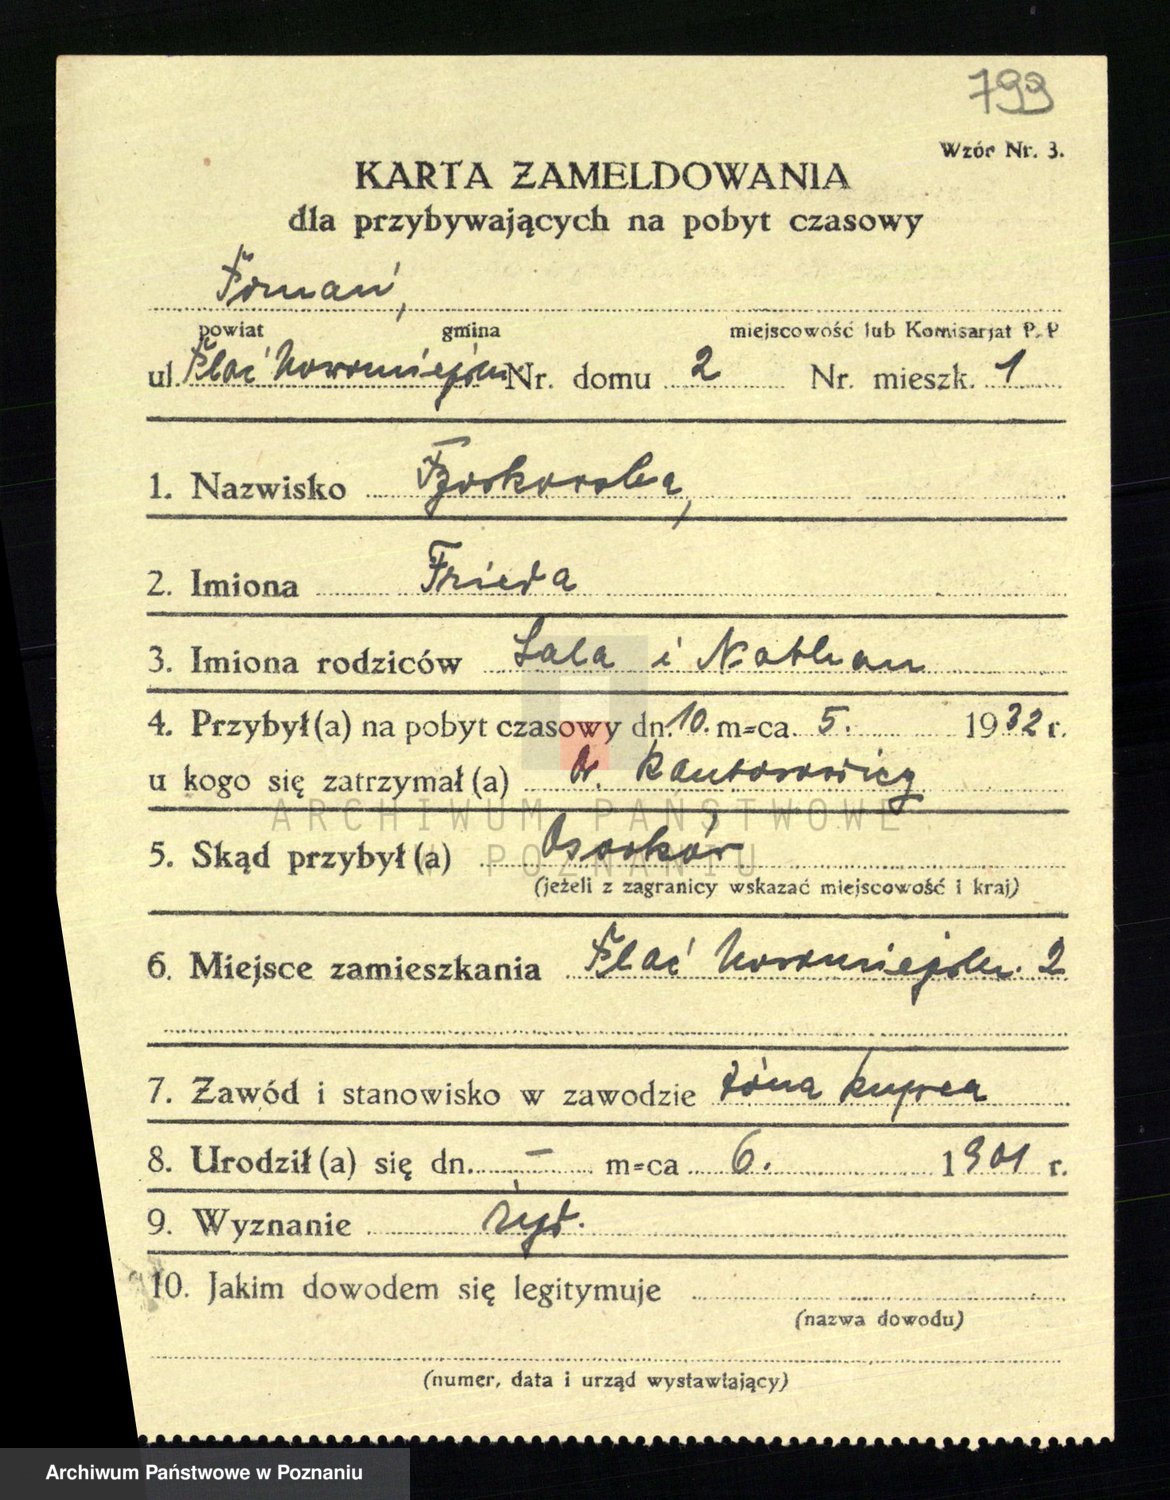 799
Wzór Nr. 3.
KARTA ZAMELDOWANIA
dla przybywających na pobyt czasowy
Poznań,
powiat gmina miejscowość lub Komisarjat P. P
ul. Plac Nowomiejski Nr. domu 2 Nr. mieszk. 1
1. Nazwisko
2. Imiona Frieda
3. Imiona rodziców Lala i Nathan
4. Przybył(a) na pobyt czasowy dn. 10. m=ca 5. 1932 r.
u kogo się zatrzymał(a) Dr. Kantorowicz
5. Skąd przybył(a)
(jeżeli z zagranicy wskazać miejscowość i kraj)
6. Miejsce zamieszkania Plac Nowomiejski. 2
7. Zawód i stanowisko w zawodzie żona kupca
8. Urodził(a) się dn. — m=ca 6. 1901 r.
9. Wyznanie żyd.
10. Jakim dowodem się legitymuje
(nazwa dowodu)
(numer, data i urząd wystawiający)
ARCHIWUM PAŃSTWOWE
W POZNANIU
Archiwum Państwowe w Poznaniu